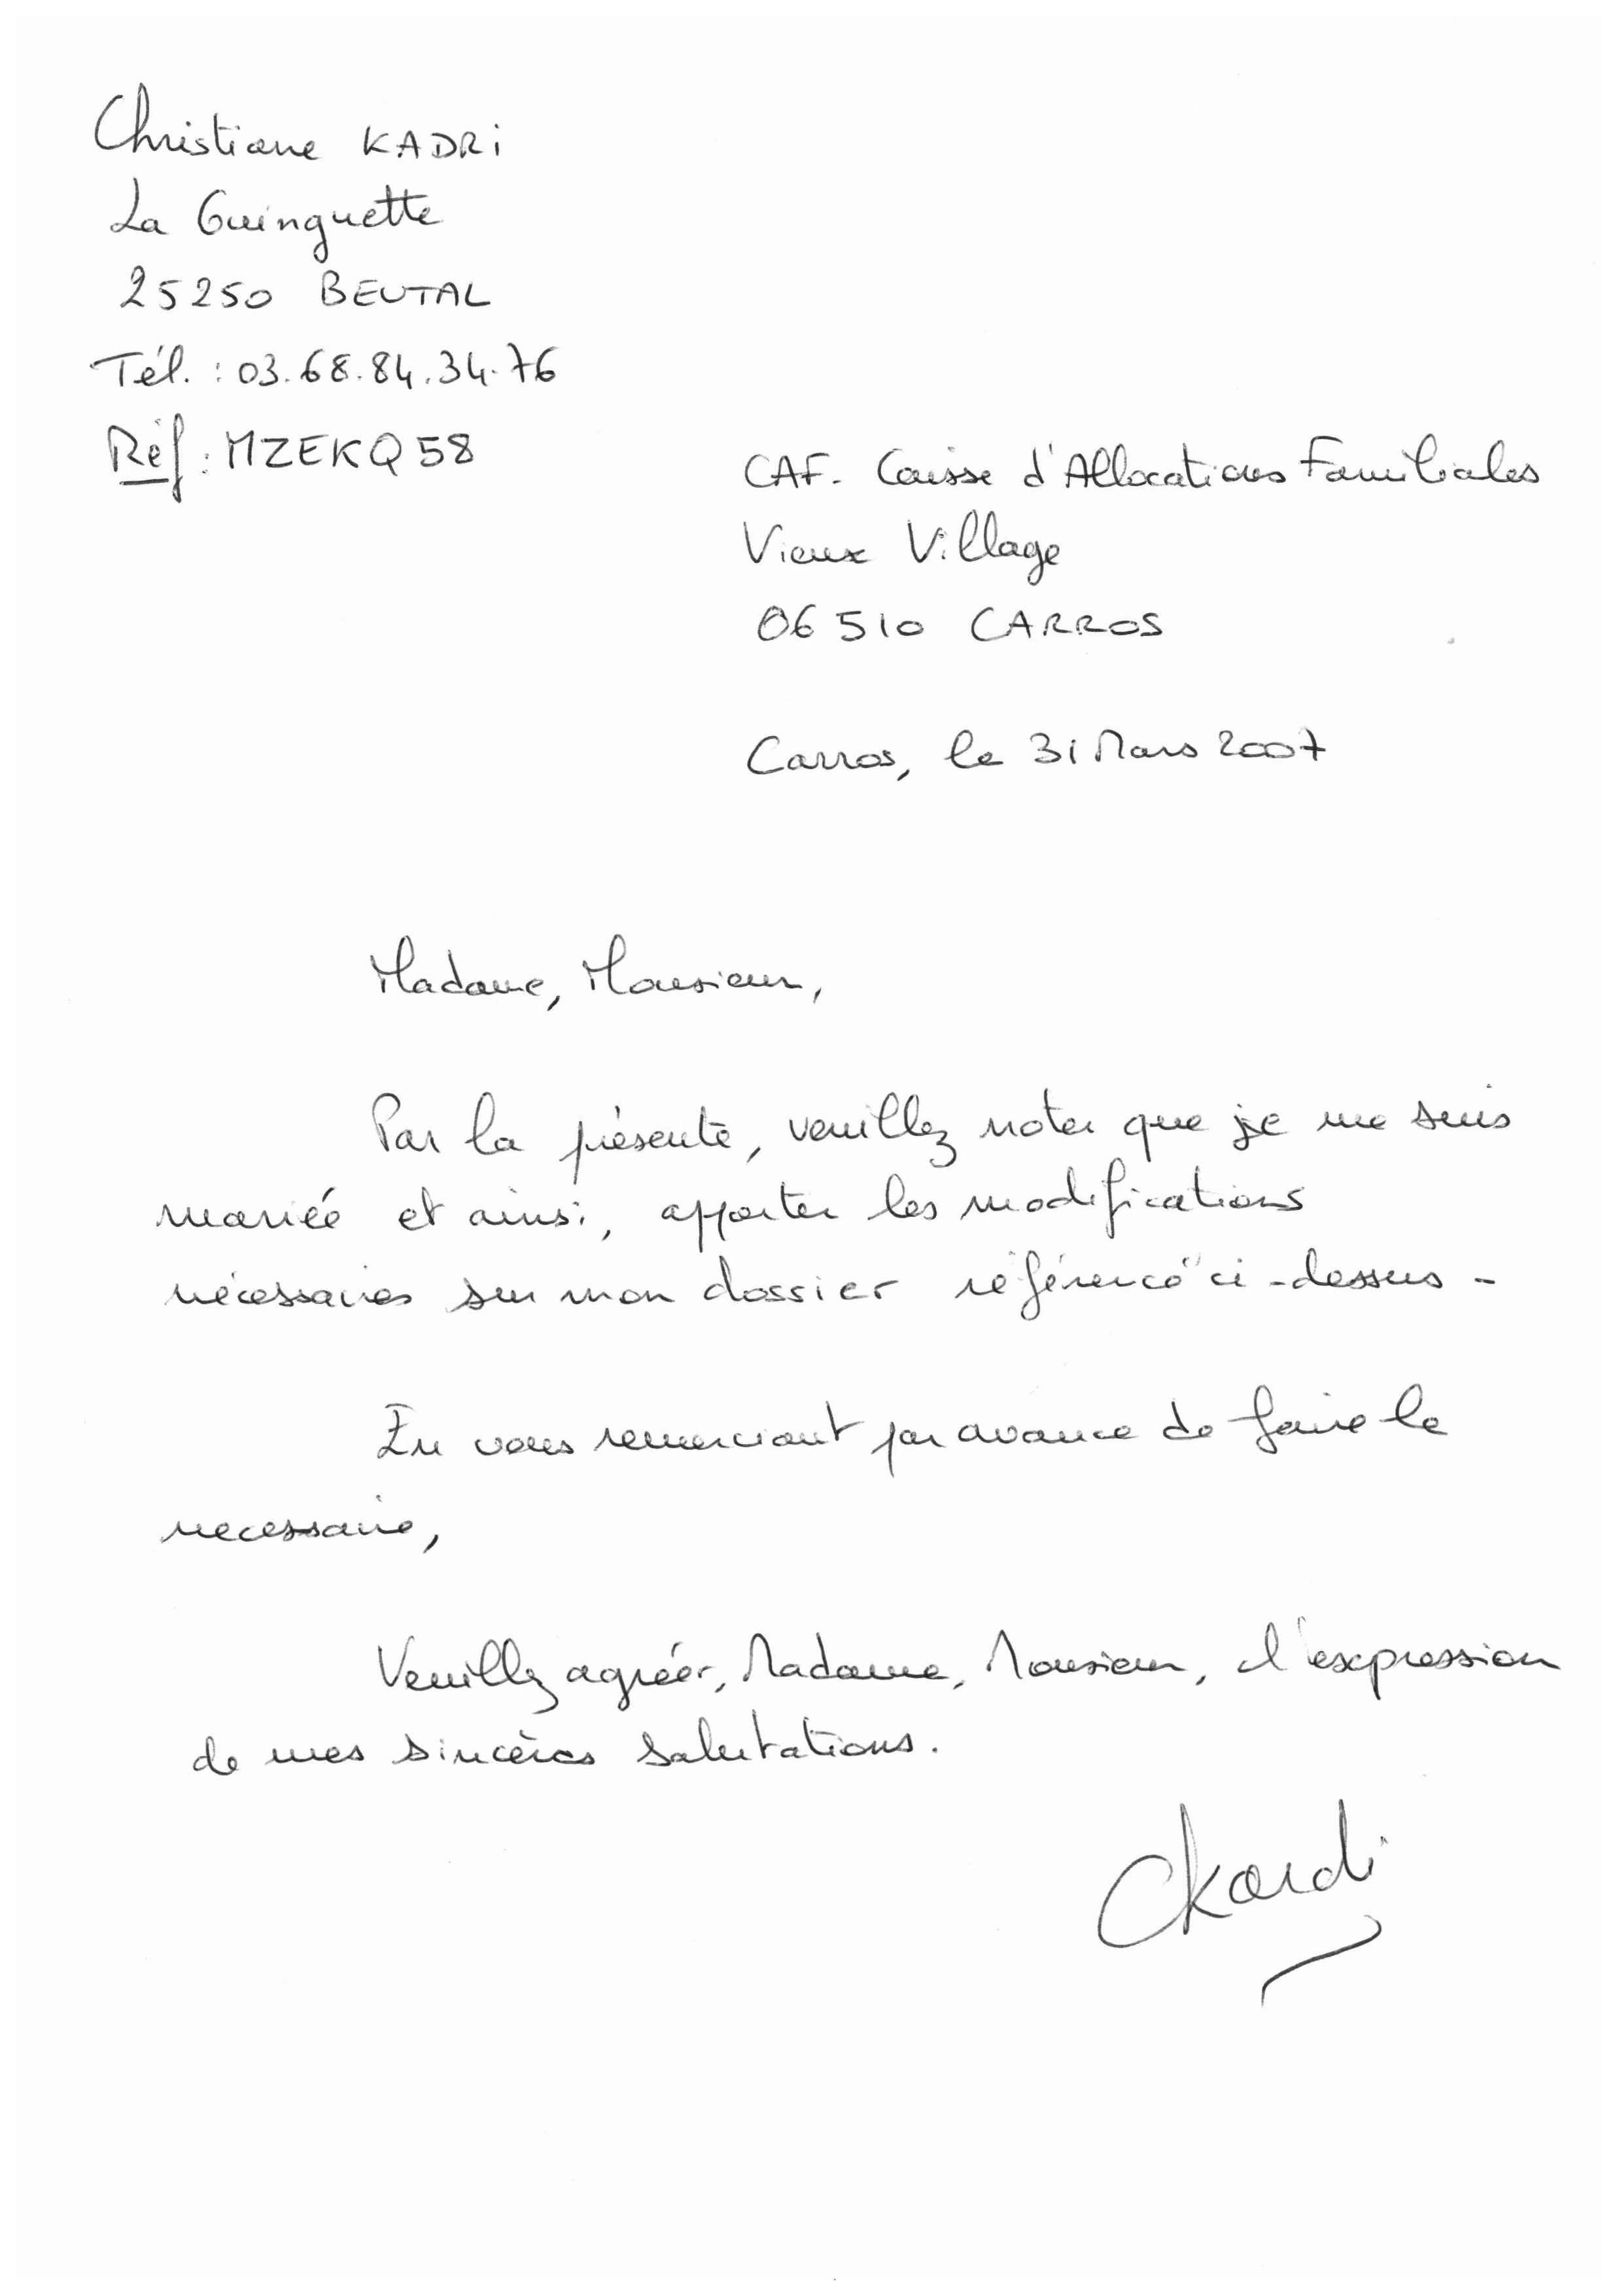 Christiane KADRI
La Guinguette
25250 BEUTAL
Tél. : 03.68.84.34.76
Réf : MZEKQ58
CAF - Caisse d'Allocations Familiales
Vieux Village
06510 CARROS
Carros, le 31 Mars 2007
Madame, Monsieur,
Par la présente, veuillez noter que je me suis
mariée et ainsi, apporter les modifications
nécessaires sur mon dossier référencé ci-dessus -
En vous remerciant par avance de faire le
necessaire,
Veuillez agréer, Madame, Monsieur, l'expression
de mes sincères salutations.
CKardi